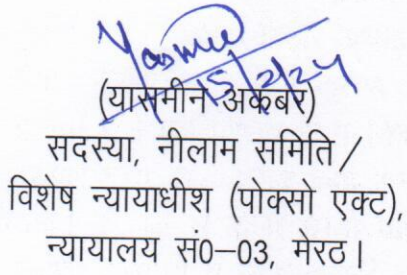 Yasmee
15/2/24
(यासमीन अकबर)
सदस्या, नीलाम समिति /
विशेष न्यायाधीश (पोक्सो एक्ट),
न्यायालय सं0–03, मेरठ।